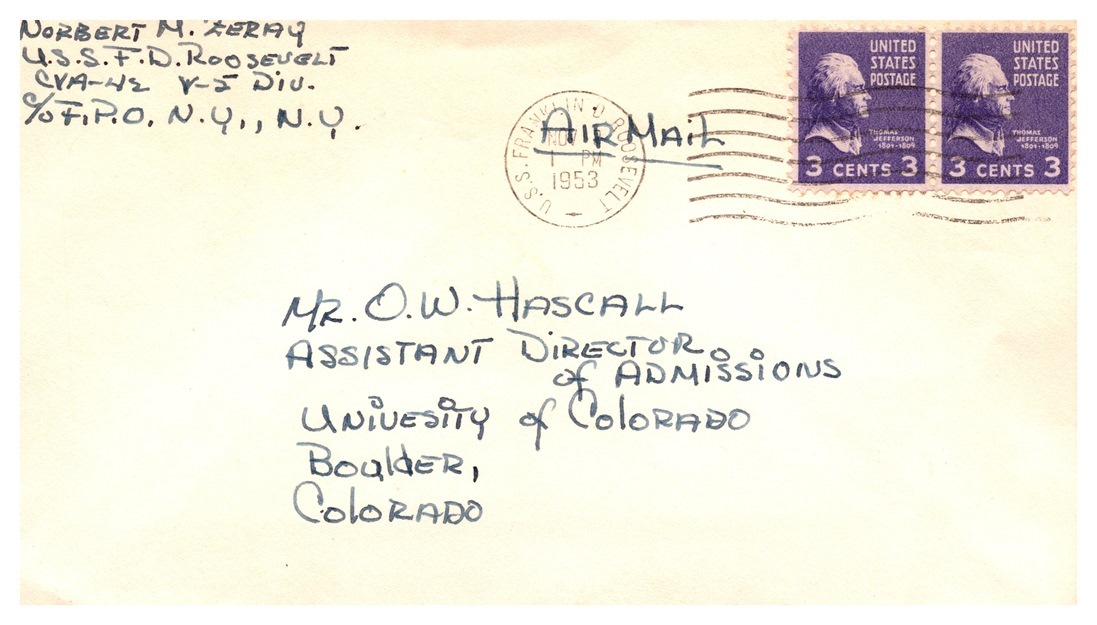 NORBERT M. ZERAY
U.S.S. F.D. ROOSEVELT
CVA-42 V-5 DIV.
C/O F.P.O. N.Y., N.Y.
AIR MAIL
U.S.S. FRANKLIN D. ROOSEVELT
NOV
1 PM
1953
UNITED
STATES
POSTAGE
THOMAS
JEFFERSON
1801-1809
3 CENTS 3
UNITED
STATES
POSTAGE
THOMAS
JEFFERSON
1801-1809
3 CENTS 3
MR. O.W. HASCALL
ASSISTANT DIRECTOR
of ADMISSIONS
UNIVESITY of COLORADO
BOULDER,
COLORADO